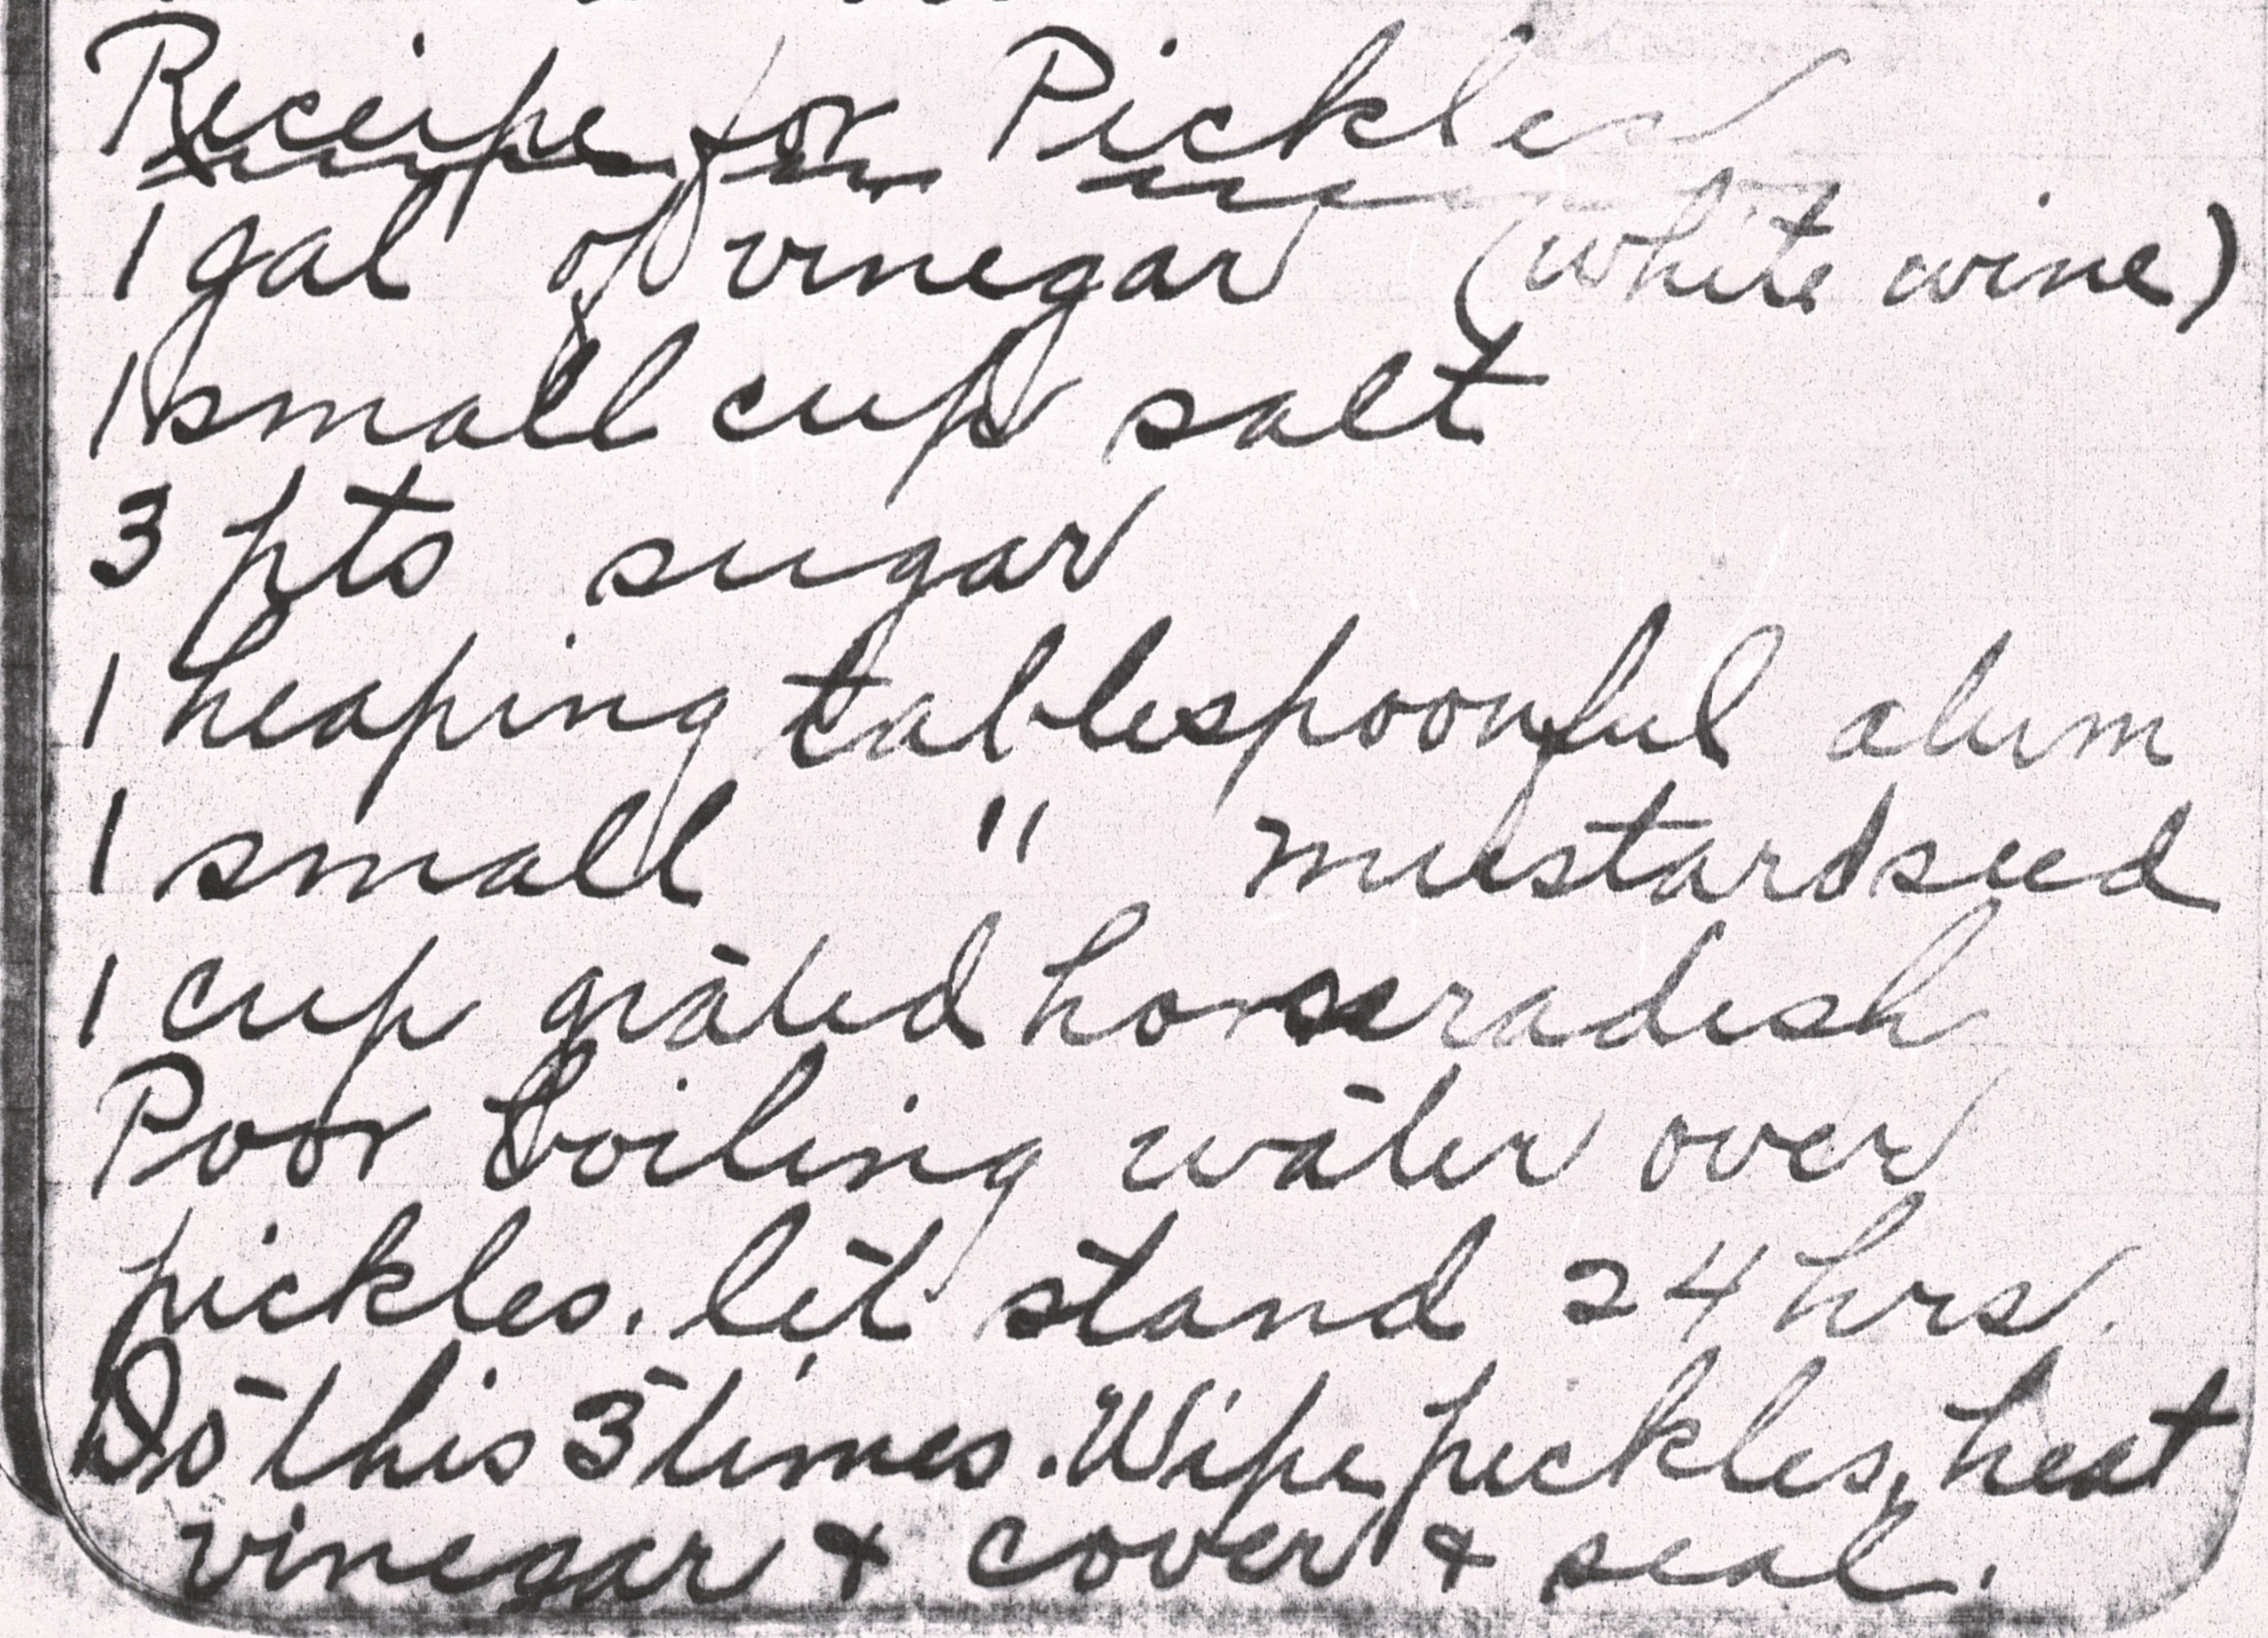 Receipe for Pickles
1 gal of vinegar (white wine)
1 small cup salt
3 pts sugar
1 heaping tablespoonful alum
1 small " mustardseed
1 cup grated horseradish
Poor boiling water over
pickles. let stand 24 hrs.
Do this 3 times. Wipe pickles, heat
vinegar & cover & seal.